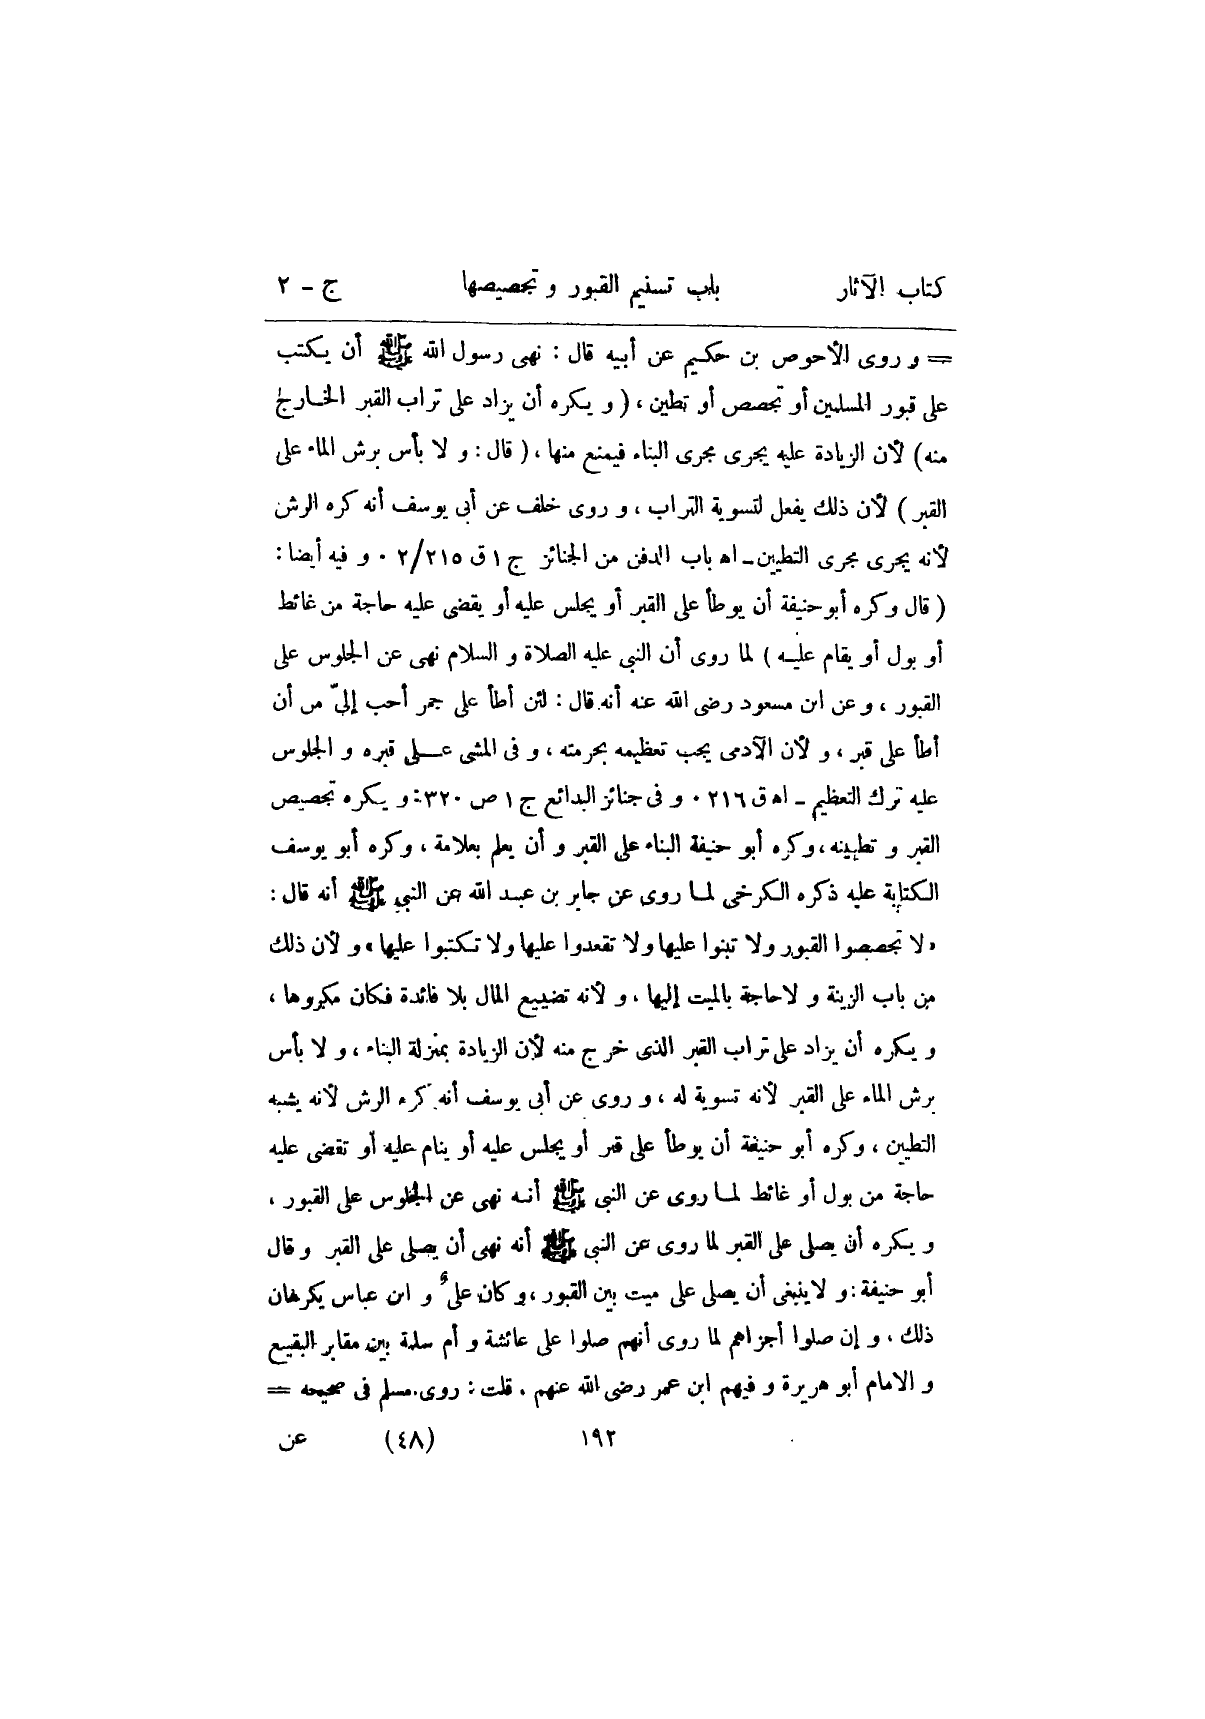 كتاب الآثار باب تسنيم القبور و تجصيصها ج - ٢
= و روى الأحوص بن حكيم عن أبيه قال : نهى رسول الله ﷺ أن يكتب
على قبور المسلمين أو تجصص أو تطين ، ( و يكره أن يزاد على تراب القبر الخارج
منه) لأن الزيادة عليه يجرى مجرى البناء فيمنع منها ، ( قال : و لا بأس برش الماء على
القبر ) لأن ذلك يفعل لتسوية التراب ، و روى خلف عن أبى يوسف أنه كره الرش
لأنه يجرى مجرى التطيين ـ اه باب الدفن من الجنائز ج ١ ق ٢/٢١٥ ٠ و فيه أيضا :
( قال وكره أبو حنيفة أن يوطأ على القبر أو يجلس عليه أو يقضى عليه حاجة من غائط
أو بول أو يقام عليه ) لما روى أن النبى عليه الصلاة و السلام نهى عن الجلوس على
القبور ، و عن ابن مسعود رضى الله عنه أنه قال : لئن أطأ على جمر أحب إلىّ من أن
أطأ على قبر ، و لأن الآدمى يجب تعظيمه بحرمته ، و فى المشى على قبره و الجلوس
عليه ترك التعظيم ـ اه ق ٢١٦ ٠ و فى جنائز البدائع ج ١ ص ٣٢٠: و يكره تجصيص
القبر و تطيينه ، وكره أبو حنيفة البناء على القبر و أن يعلم بعلامة ، وكره أبو يوسف
الكتابة عليه ذكره الكرخى لما روى عن جابر بن عبد الله عن النبى ﷺ أنه قال :
« لا تجصصوا القبور ولا تبنوا عليها ولا تقعدوا عليها ولا تكتبوا عليها » و لأن ذلك
من باب الزينة و لا حاجة بالميت إليها ، و لأنه تضييع المال بلا فائدة فكان مكروها ،
و يكره أن يزاد على تراب القبر الذى خرج منه لأن الزيادة بمنزلة البناء ، و لا بأس
برش الماء على القبر لأنه تسوية له ، و روى عن أبى يوسف أنه كره الرش لأنه يشبه
التطيين ، وكره أبو حنيفة أن يوطأ على قبر أو يجلس عليه أو ينام عليه أو تقضى عليه
حاجة من بول أو غائط لما روى عن النبى ﷺ أنه نهى عن الجلوس على القبور ،
و يكره أن يصلى على القبر لما روى عن النبى ﷺ أنه نهى أن يصلى على القبر و قال
أبو حنيفة : و لا ينبغى أن يصلى على ميت بين القبور ، و كان علىٌ و ابن عباس يكرهان
ذلك ، و إن صلوا أجزاهم لما روى أنهم صلوا على عائشة و أم سلمة بين مقابر البقيع
و الامام أبو هريرة و فيهم ابن عمر رضى الله عنهم ٠ قلت : روى مسلم فى صحيحه =
١٩٢ (٤٨) عن